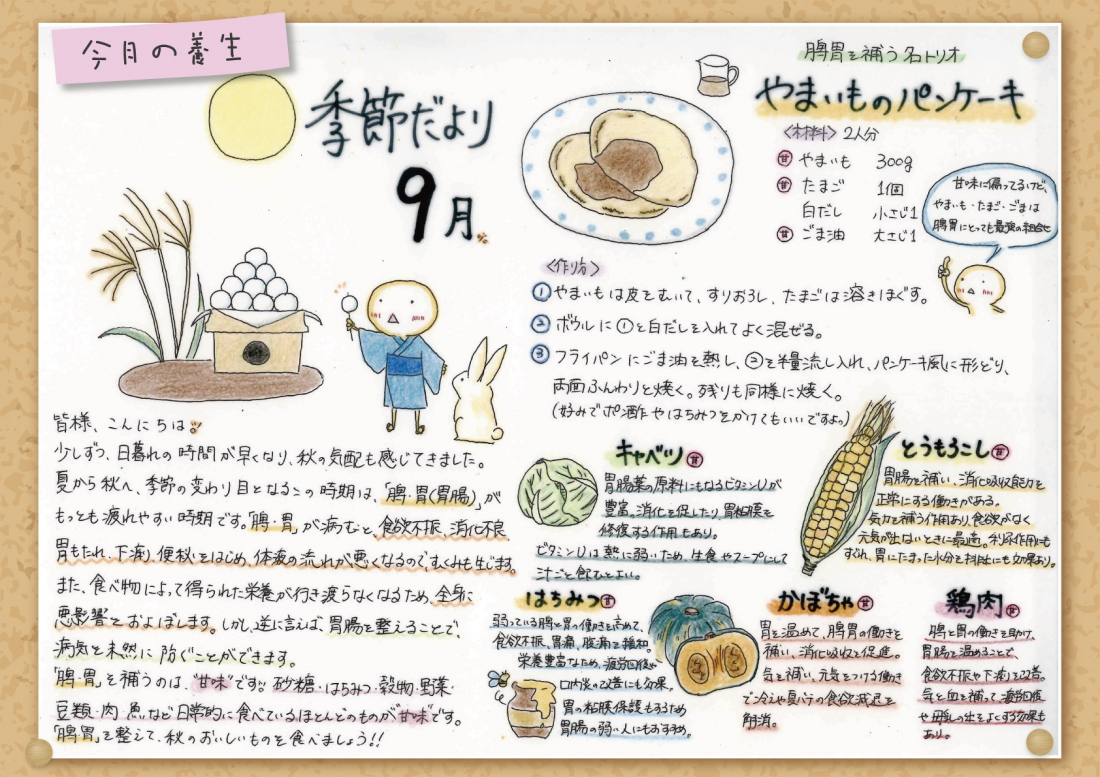 今月の養生
季節だより
9月
皆様、こんにちは
少しずつ、日暮れの時間が早くなり、秋の気配も感じてきました。
夏から秋へ、季節の変わり目となるこの時期は、「脾・胃(胃腸)」が
もっとも疲れやすい時期です。「脾・胃」が病むと、食欲不振、消化不良
胃もたれ、下痢、便秘をはじめ、体液の流れが悪くなるので、むくみも生じます。
また、食べ物によって得られた栄養が行き渡らなくなるため、全身に
悪影響をおよぼします。しかし、逆に言えば、胃腸を整えることで、
病気を未然に防ぐことができます。
「脾・胃」を補うのは、"甘味"です!! 砂糖・はちみつ・穀物・野菜・
豆類・肉・魚など日常的に食べているほとんどのものが"甘味"です。
「脾胃」を整えて、秋のおいしいものを食べましょう!!
脾胃を補う名トリオ
やまいものパンケーキ
〈材料〉2人分
甘 やまいも 300g
甘 たまご 1個
白だし 小さじ1
甘 ごま油 大さじ1
甘味に偏ってるけど、
やまいも・たまご・ごまは
脾胃にとっても最強の組合せ
〈作り方〉
① やまいもは皮をむいて、すりおろし、たまごは溶きほぐす。
② ボウルに①と白だしを入れてよく混ぜる。
③ フライパンにごま油を熱し、②を半量流し入れ、パンケーキ風に形どり、
両面ふんわりと焼く。残りも同様に焼く。
(好みでポン酢やはちみつをかけてもいいですよ♪)
キャベツ 甘
胃腸薬の原料にもなるビタミンUが
豊富。消化を促したり、胃粘膜を
修復する作用もあり。
ビタミンUは熱に弱いため、生食やスープにして
汁ごと飲むとよい。
とうもろこし 甘
胃腸を補い、消化吸収能力を
正常にする働きがある。
気力を補う作用あり、食欲がなく
元気が出ないときに最適。利尿作用にも
すぐれ、胃にたまった水分を排出にも効果あり。
はちみつ 甘
弱っている脾と胃の働きを高めて、
食欲不振、胃痛、腹痛を緩和。
栄養豊富なため、疲労回復や
口内炎の改善にも効果。
胃の粘膜保護もするため
胃腸の弱い人にもおすすめ。
かぼちゃ 甘
胃を温めて、脾胃の働きを
補い、消化吸収を促進。
気を補い、元気をつける働き
で冷えや夏バテの食欲減退を
解消。
鶏肉 甘
脾と胃の働きを助け、
胃腸を温めることで、
食欲不振や下痢を改善。
気と血を補って、疲労回復
や母乳の出をよくする効果も
あり。